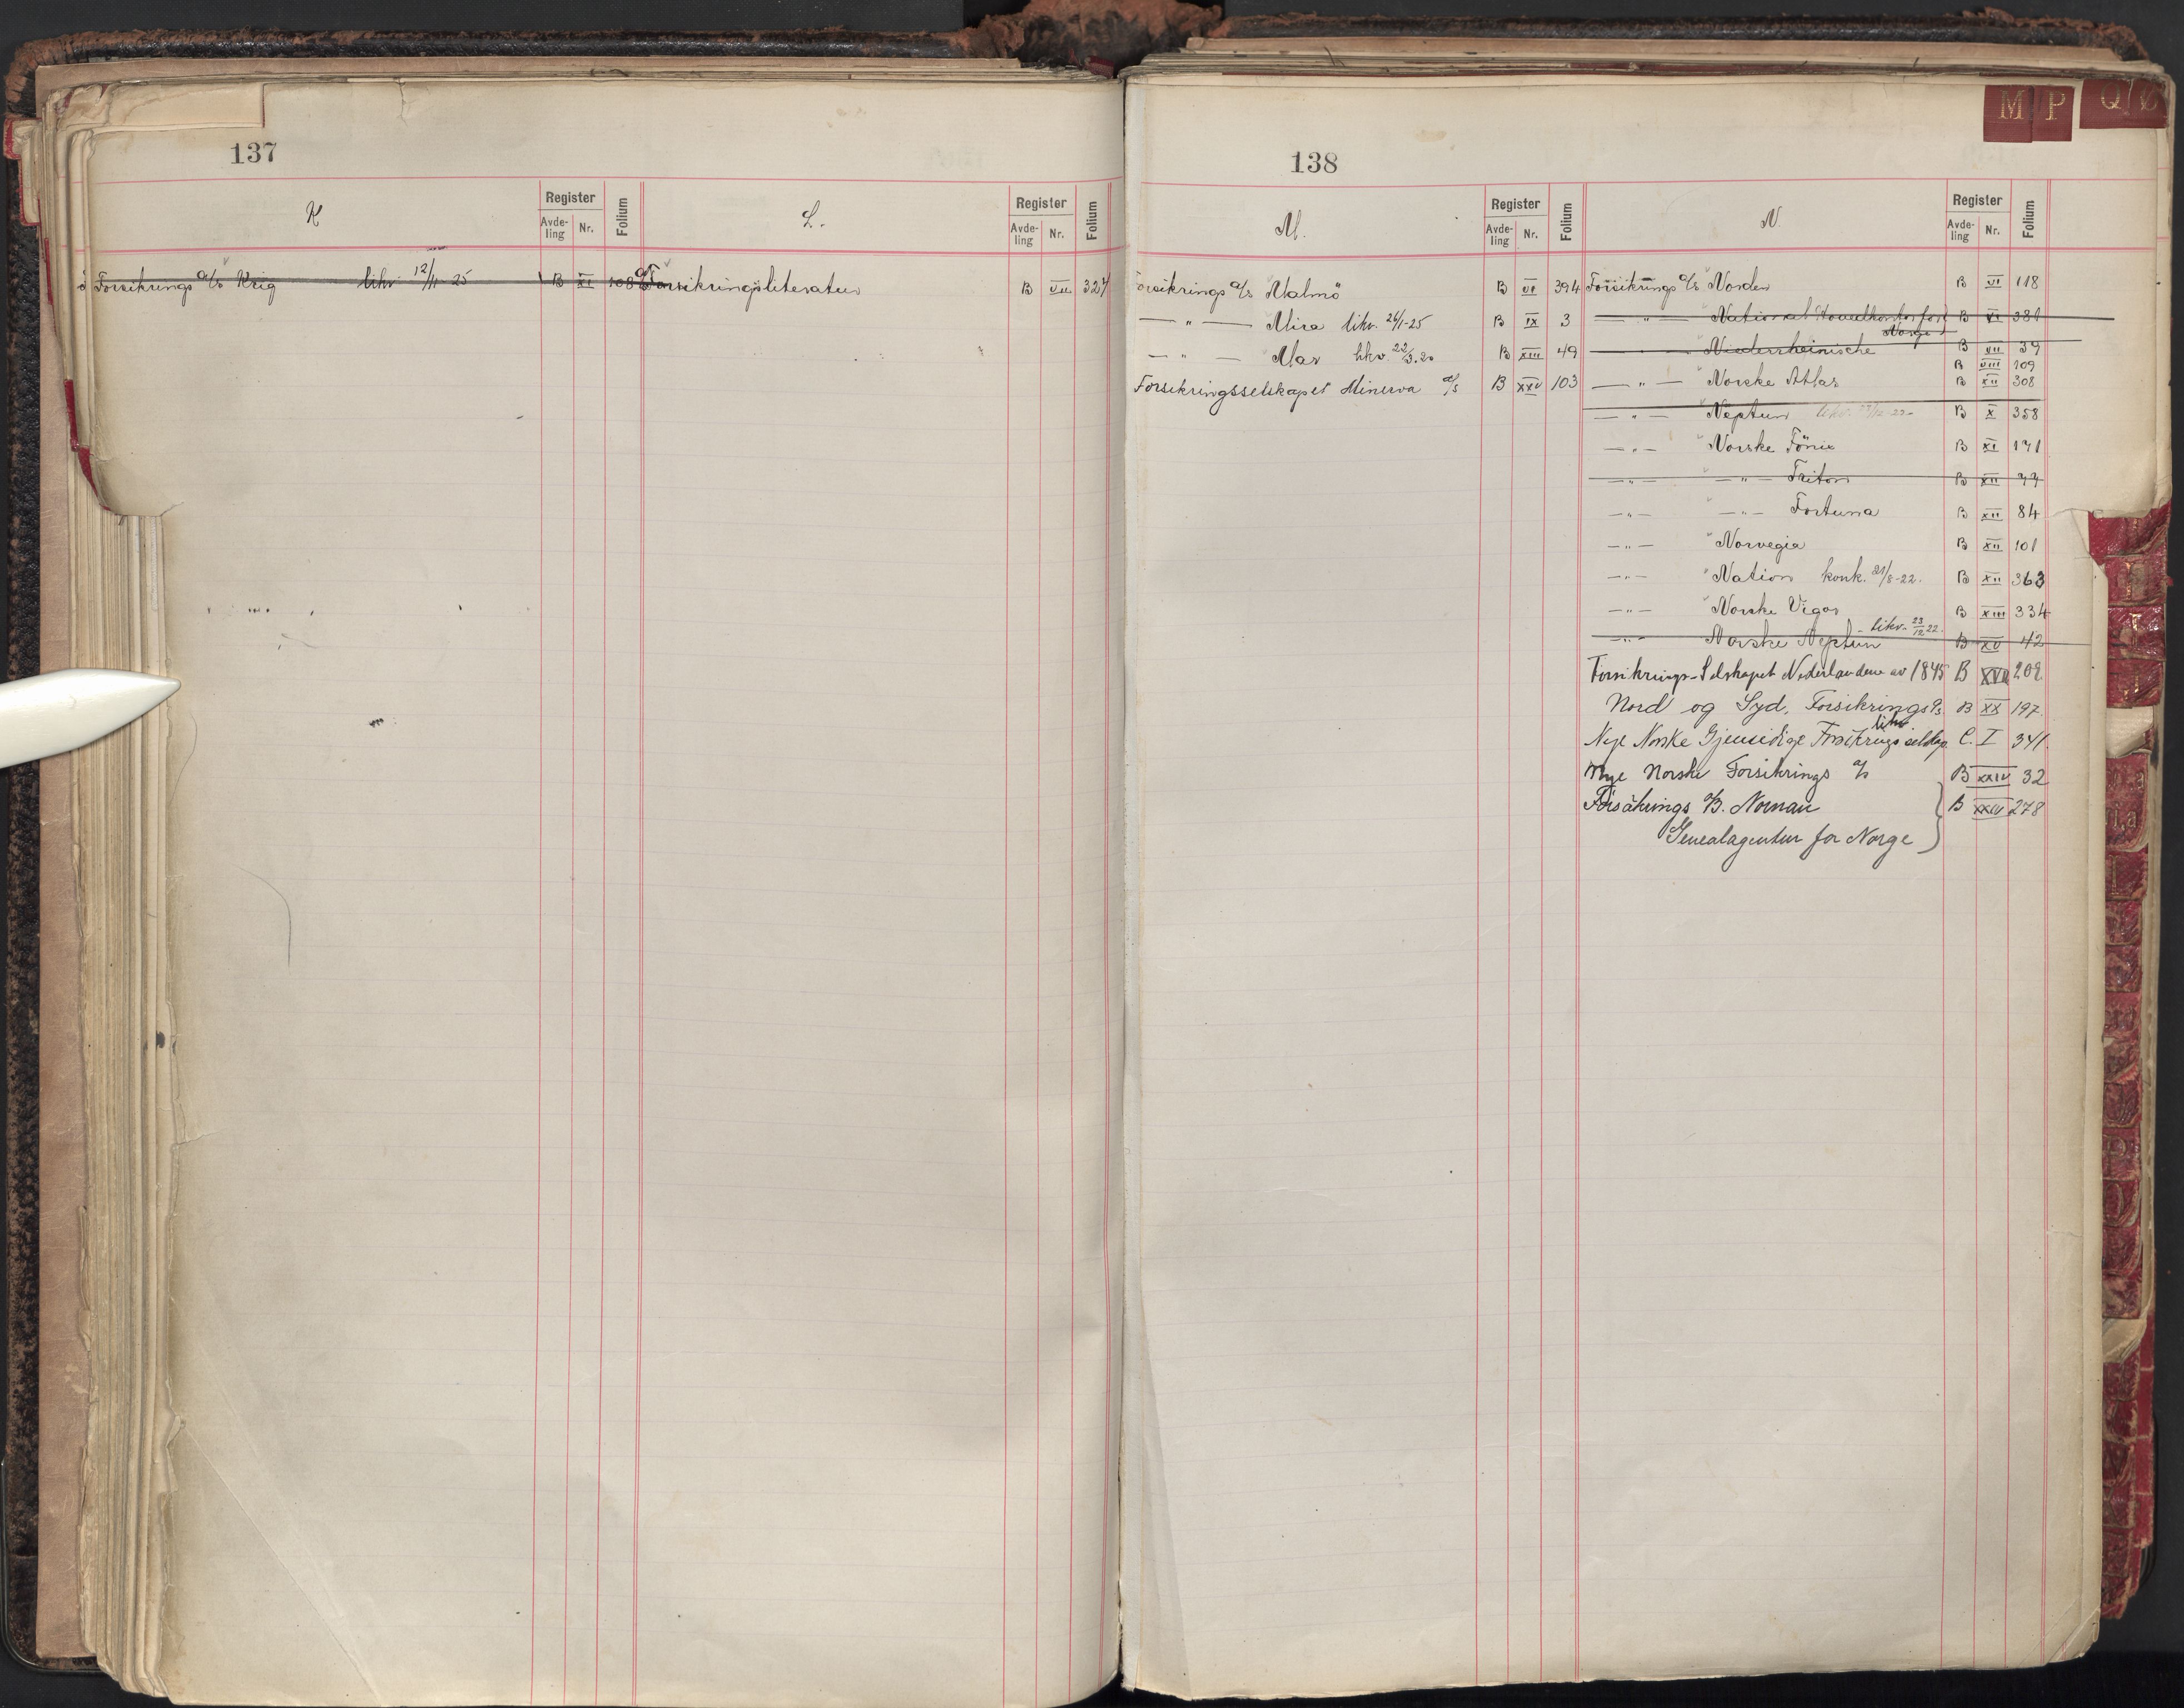 137
K
Register
Avde-
ling
Nr.
Folium
Forsikrings A/s Krig likv 12/11-25 B XI 108
L.
Register
Avde-
ling
Nr.
Folium
A/s Forsikringsliteratur B VII 327
138
M P Q Ø
M.
Register
Avde-
ling
Nr.
Folium
Forsikrings A/s "Malmö B VI 394
— " — Mira likv. 26/1-25 B IX 3
— " — Mar likv. 22/3.20 B XIII 49
Forsikringsselskapet Minerva A/S B XXV 103
N.
Register
Avde-
ling
Nr.
Folium
Forsikrings A/s "Norden B VI 118
— " — National (Hovedkontor for B VI 381
Norge)
— " — Niederrheinische B VII 39
B VIII 209
— " — "Norske Atlas B XII 308
— " — "Neptun likv. 23/12-22 B X 358
— " — "Norske Fönix B XI 171
— " — — " — Triton B XII 77
— " — — " — Fortuna B XII 84
— " — "Norvegia B XII 101
— " — "Nation konk. 21/8-22. B XII 363
— " — "Norske Vigor B XIII 334
— " — Norske Neptun - likv. 23/12 22. B XV 42
Forsikrings-Selskapet Nederlandene av 1845 B XVII 202
Nord og Syd, Forsikrings A/s B XX 197
likv
Nye Norske Gjensidige Forsikringsselskap C. I 341.
Nye Norske Forsikrings A/s B XXIV 32
Försäkrings A/B. Nornan B XXIV 278
Generalagentur for Norge